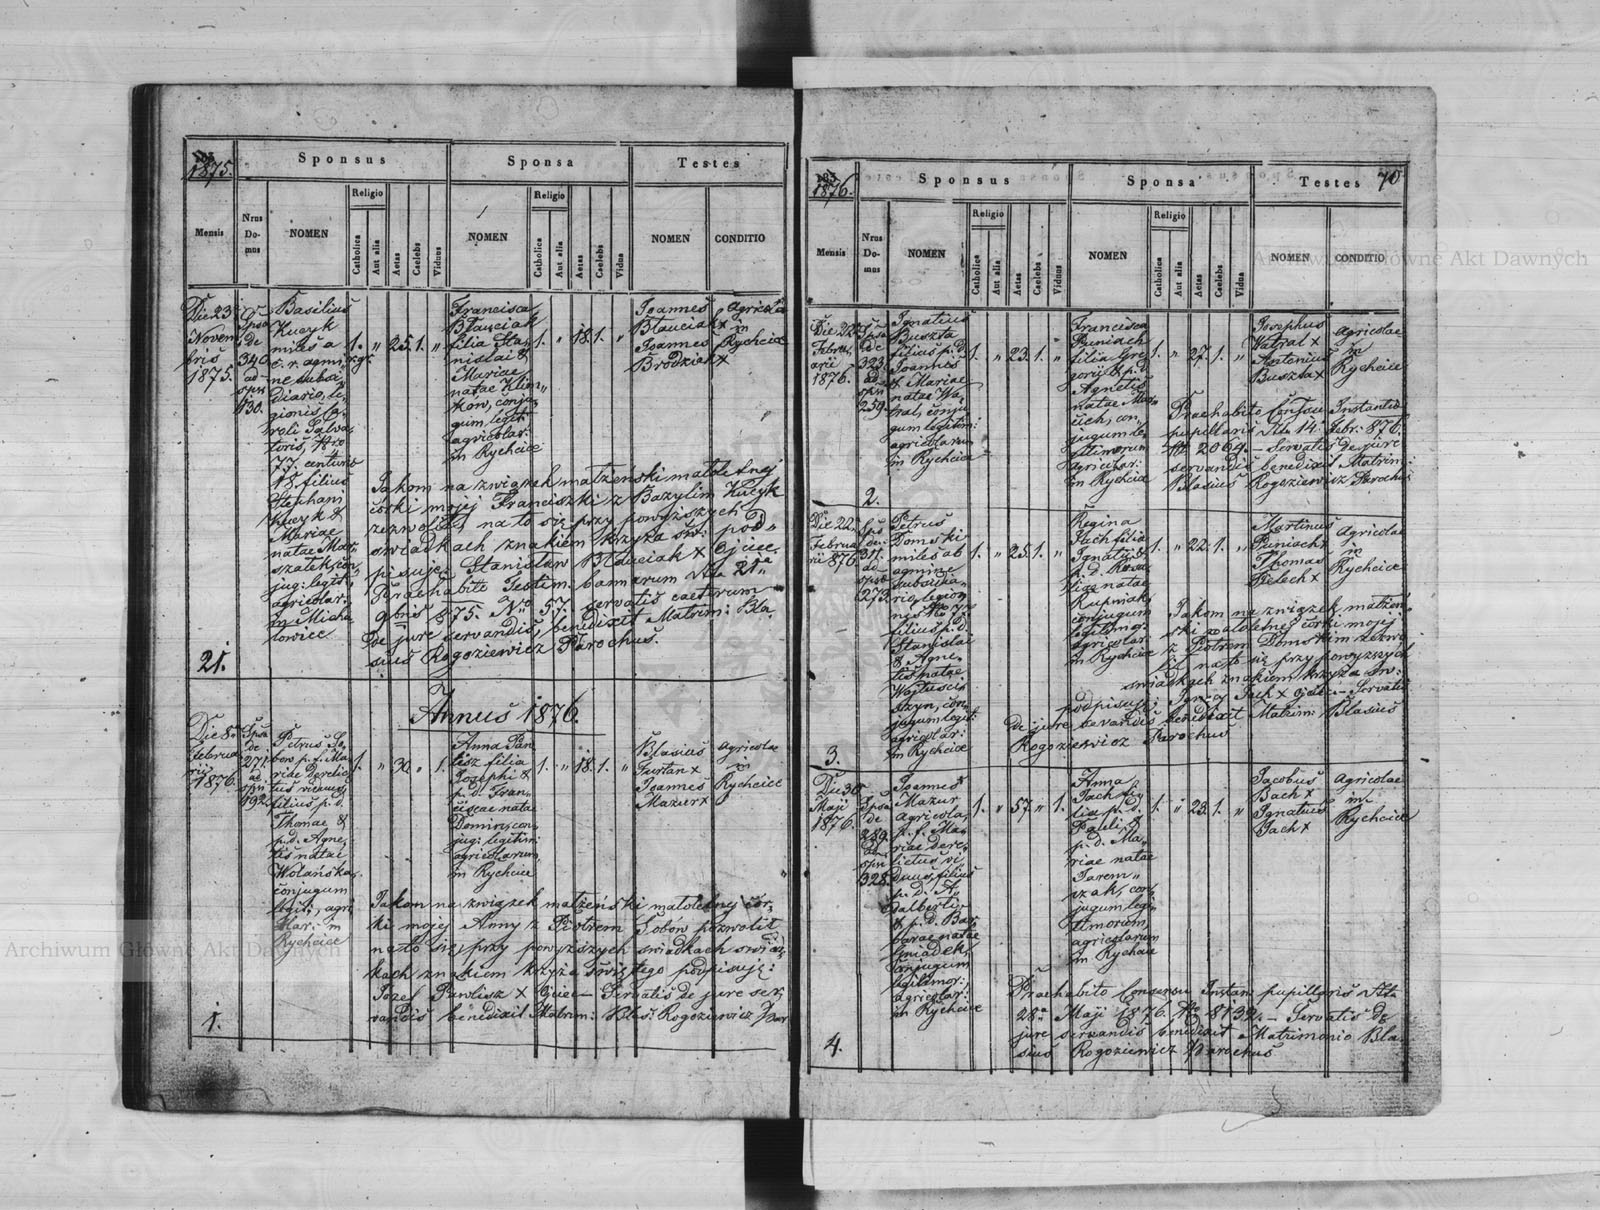 1875.
Sponsus
Sponsa
Testes
Mensis
Nrus
Do-
mus
NOMEN
Religio
Catholica
Aut alia
Aetas
Caelebs
Viduus
NOMEN
Religio
Catholica
Aut alia
Aetas
Caelebs
Vidua
NOMEN
CONDITIO
Die 23
Novem
bris
1875.
Spsa
de
340.
ad
spsi
130.
Basilius
Kucyk
miles a
c. r. agmi
ne subsi
diario, le,
gionis Ca
roli Salva
toris, Nro
77. centuria
18. filius
Stephani
Kucyk &
Mariae
natae Mar
szałek, con,
jug: legit:
agricolar:
in Micha
łowice
1. " 25. 1. "
Francisca
Błauciak
filia Sta,
nislai &
Mariae
natae Klim
kow, conju,
gum, legit:
agricolar:
in Rychcice
1. " 18. 1. "
Joannes
Błauciak x
Joannes
Brodziak x
Agricolae
in
Rychcice
Jakom na związek małżenski małoletnej
córki mojej Franciszki z Bazylim Kucyk
zezwolił, na to się przy powyższych
swiadkach znakiem krzyża św: pod"
pisuje: Stanisław Błauciak x Ojciec.
Praehabito Testim: bannorum dtto 21a
9bris 875. No 57. servatis caeterum
de jure servandis, benedixit Matrim: Bla
sius Rogoziewicz Parochus.
21.
Annus 1876.
Die 8a
Februa
rii
1876.
Spsa
de
271.
ad
spsi
192.
Petrus So,
bow p. f. Ma,
riae derelic
tus viduus,
filius p. d.
Thomae &
p. d. Agne,
tis natae
Wolańska,
conjugum
legit:, agri
colar: in
Rychcice
1. " 30. " 1.
Anna Paw
lisz filia
Josephi &
p. d. Fran,
ciscae natae
Domin, con,
jug: legitim:
agricolarum
in Rychcice
1. " 18. 1. "
Blasius
Furtan x
Joannes
Mazur x
Agricolae
in
Rychcice
Jakom na związek małżeński małoletnej cór,
ki mojej Anny z Piotrem Sobów pozwolił
na to się przy powyższych świadkach świad
kach znakiem krzyża świętego podpisuję:
Jozef Pawlisz x Ojciec – Servatis de jure ser,
vandis benedixit Matrim: Blas: Rogoziewicz Par
1.
1876.
70
Sponsus
Sponsa
Testes
Mensis
Nrus
Do-
mus
NOMEN
Religio
Catholica
Aut alia
Aetas
Caelebs
Viduus
NOMEN
Religio
Catholica
Aut alia
Aetas
Caelebs
Vidua
NOMEN
CONDITIO
Die 22
Febru,
arii
1876.
Spsa
de
323.
ad
spsi
259.
Ignatius
Buszta
filius p. d.
Joannis
& Mariae
natae Wa,
tral, conju
gum legitim:
agricolarum
in Rychcice
1. " 23. 1. "
Francisca
Puniach
filia Gre
gorii & p. d.
Agnetis
natae Mar
cich, con,
jugum le
gitimorum
agricolar:
in Rychcice
1. " 27. 1. "
Josephus
Watral x
Antonius
Buszta x
Agricolae
in
Rychcice
Praehabito Consensu Instantiae
pupillaris dtto 14. Febr: 876.
No 2064. – Servatis de jure
servandis benedixit Matrim:
Blasius Rogoziewicz Parochus
2.
Die 22.
Februa
rii 876
Sps
de
311.
ad
spsae
273.
Petrus
Domski
miles ab
agmine
subsidia,
rio, legio
nis No 77.
filius p. d.
Stanislai
& Agne,
tis natae
Wojtusci,
szyn, con,
jugum legit:
agricolar:
in Rychcice
1. " 25. 1. "
Regina
Jach filia
Ignatii &
p. d. Rosa
liae natae
Kupniak,
conjugum
legitimor:
agricolar:
in Rychcice
1. " 22. 1. "
Martinus
Puniach x
Thomas
Pelech x
Agricolae
in
Rychcice
Jakom na związek małżeń
ski małoletnej córki mojej
z Piotrem Domskim zezwo
lił na to się przy powyższych
swiadkach znakiem krzyża sw:
podpisuję: Ignacy Jach x Ojciec – Servatis
de jure servandis benedixit Matrim: Blasius
Rogoziewicz Parochus
3.
Die 30
Maji
1876.
Spsa
de
289.
ad
spsi
328.
Joannes
Mazur
agricola,
p. f. Ma,
riae dere,
lictus vi
duus, filius
p. d. A,
dalberti
& p. d. Bar
barae natae
Gniadek,
conjugum
legitimor:
agricolar:
in Rychcice
1. " 57. " 1.
Anna
Jach fi,
lia p. d.
Pauli &
p. d. Ma,
riae natae
Jarem"
szak, con,
jugum legi,
timorum
agricolarum
in Rychcice
1. " 23. 1. "
Jacobus
Bach x
Ignatius
Jach x
Agricolae
in
Rychcice
Praehabito Consensu Instan: pupillaris dtto
28a Maji 1876. No 8732. – Servatis de
jure servandis benedixit Matrimonio Bla,
sius Rogoziewicz Parochus
4.
Archiwum Główne Akt Dawnych
Archiwum Główne Akt Dawnych